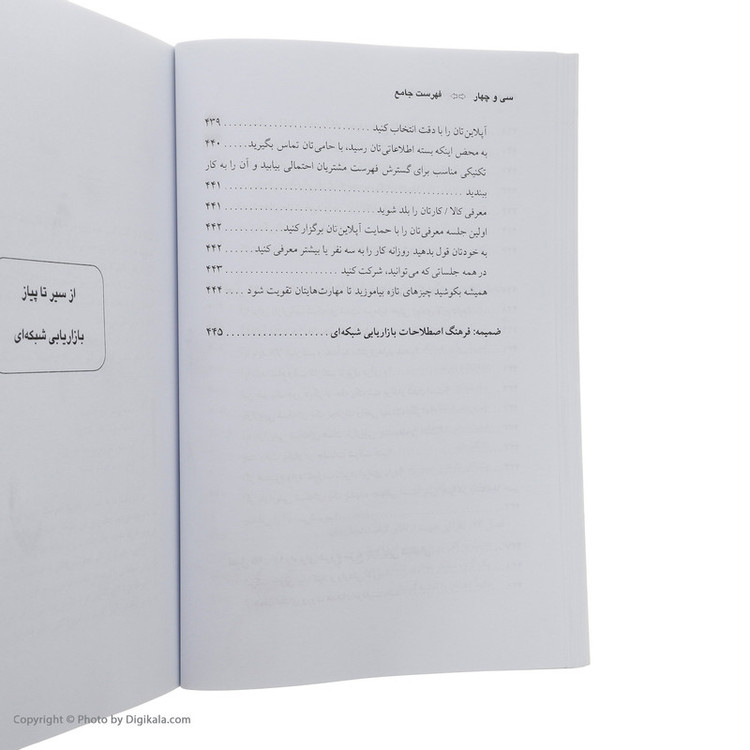 سی و چهار ⇦⇨ فهرست جامع
آپلاین‌تان را با دقت انتخاب کنید ............................ ۴۳۹
به محض اینکه بسته اطلاعاتی‌تان رسید، با حامی‌تان تماس بگیرید ..... ۴۴۰
تکنیکی مناسب برای گسترش فهرست مشتریان احتمالی بیابید و آن را به کار
ببندید ............................ ۴۴۱
معرفی کالا / کارتان را بلد شوید ............................ ۴۴۱
اولین جلسه معرفی‌تان را با حمایت آپلاین‌تان برگزار کنید ............. ۴۴۲
به خودتان قول بدهید روزانه کار را به سه نفر یا بیشتر معرفی کنید ..... ۴۴۲
در همه جلساتی که می‌توانید، شرکت کنید ...................... ۴۴۳
همیشه بکوشید چیزهای تازه بیاموزید تا مهارت‌هایتان تقویت شود .... ۴۴۴
ضمیمه: فرهنگ اصطلاحات بازاریابی شبکه‌ای .................... ۴۴۵
از سیر تا پیاز
بازاریابی شبکه‌ای
Copyright © Photo by Digikala.com